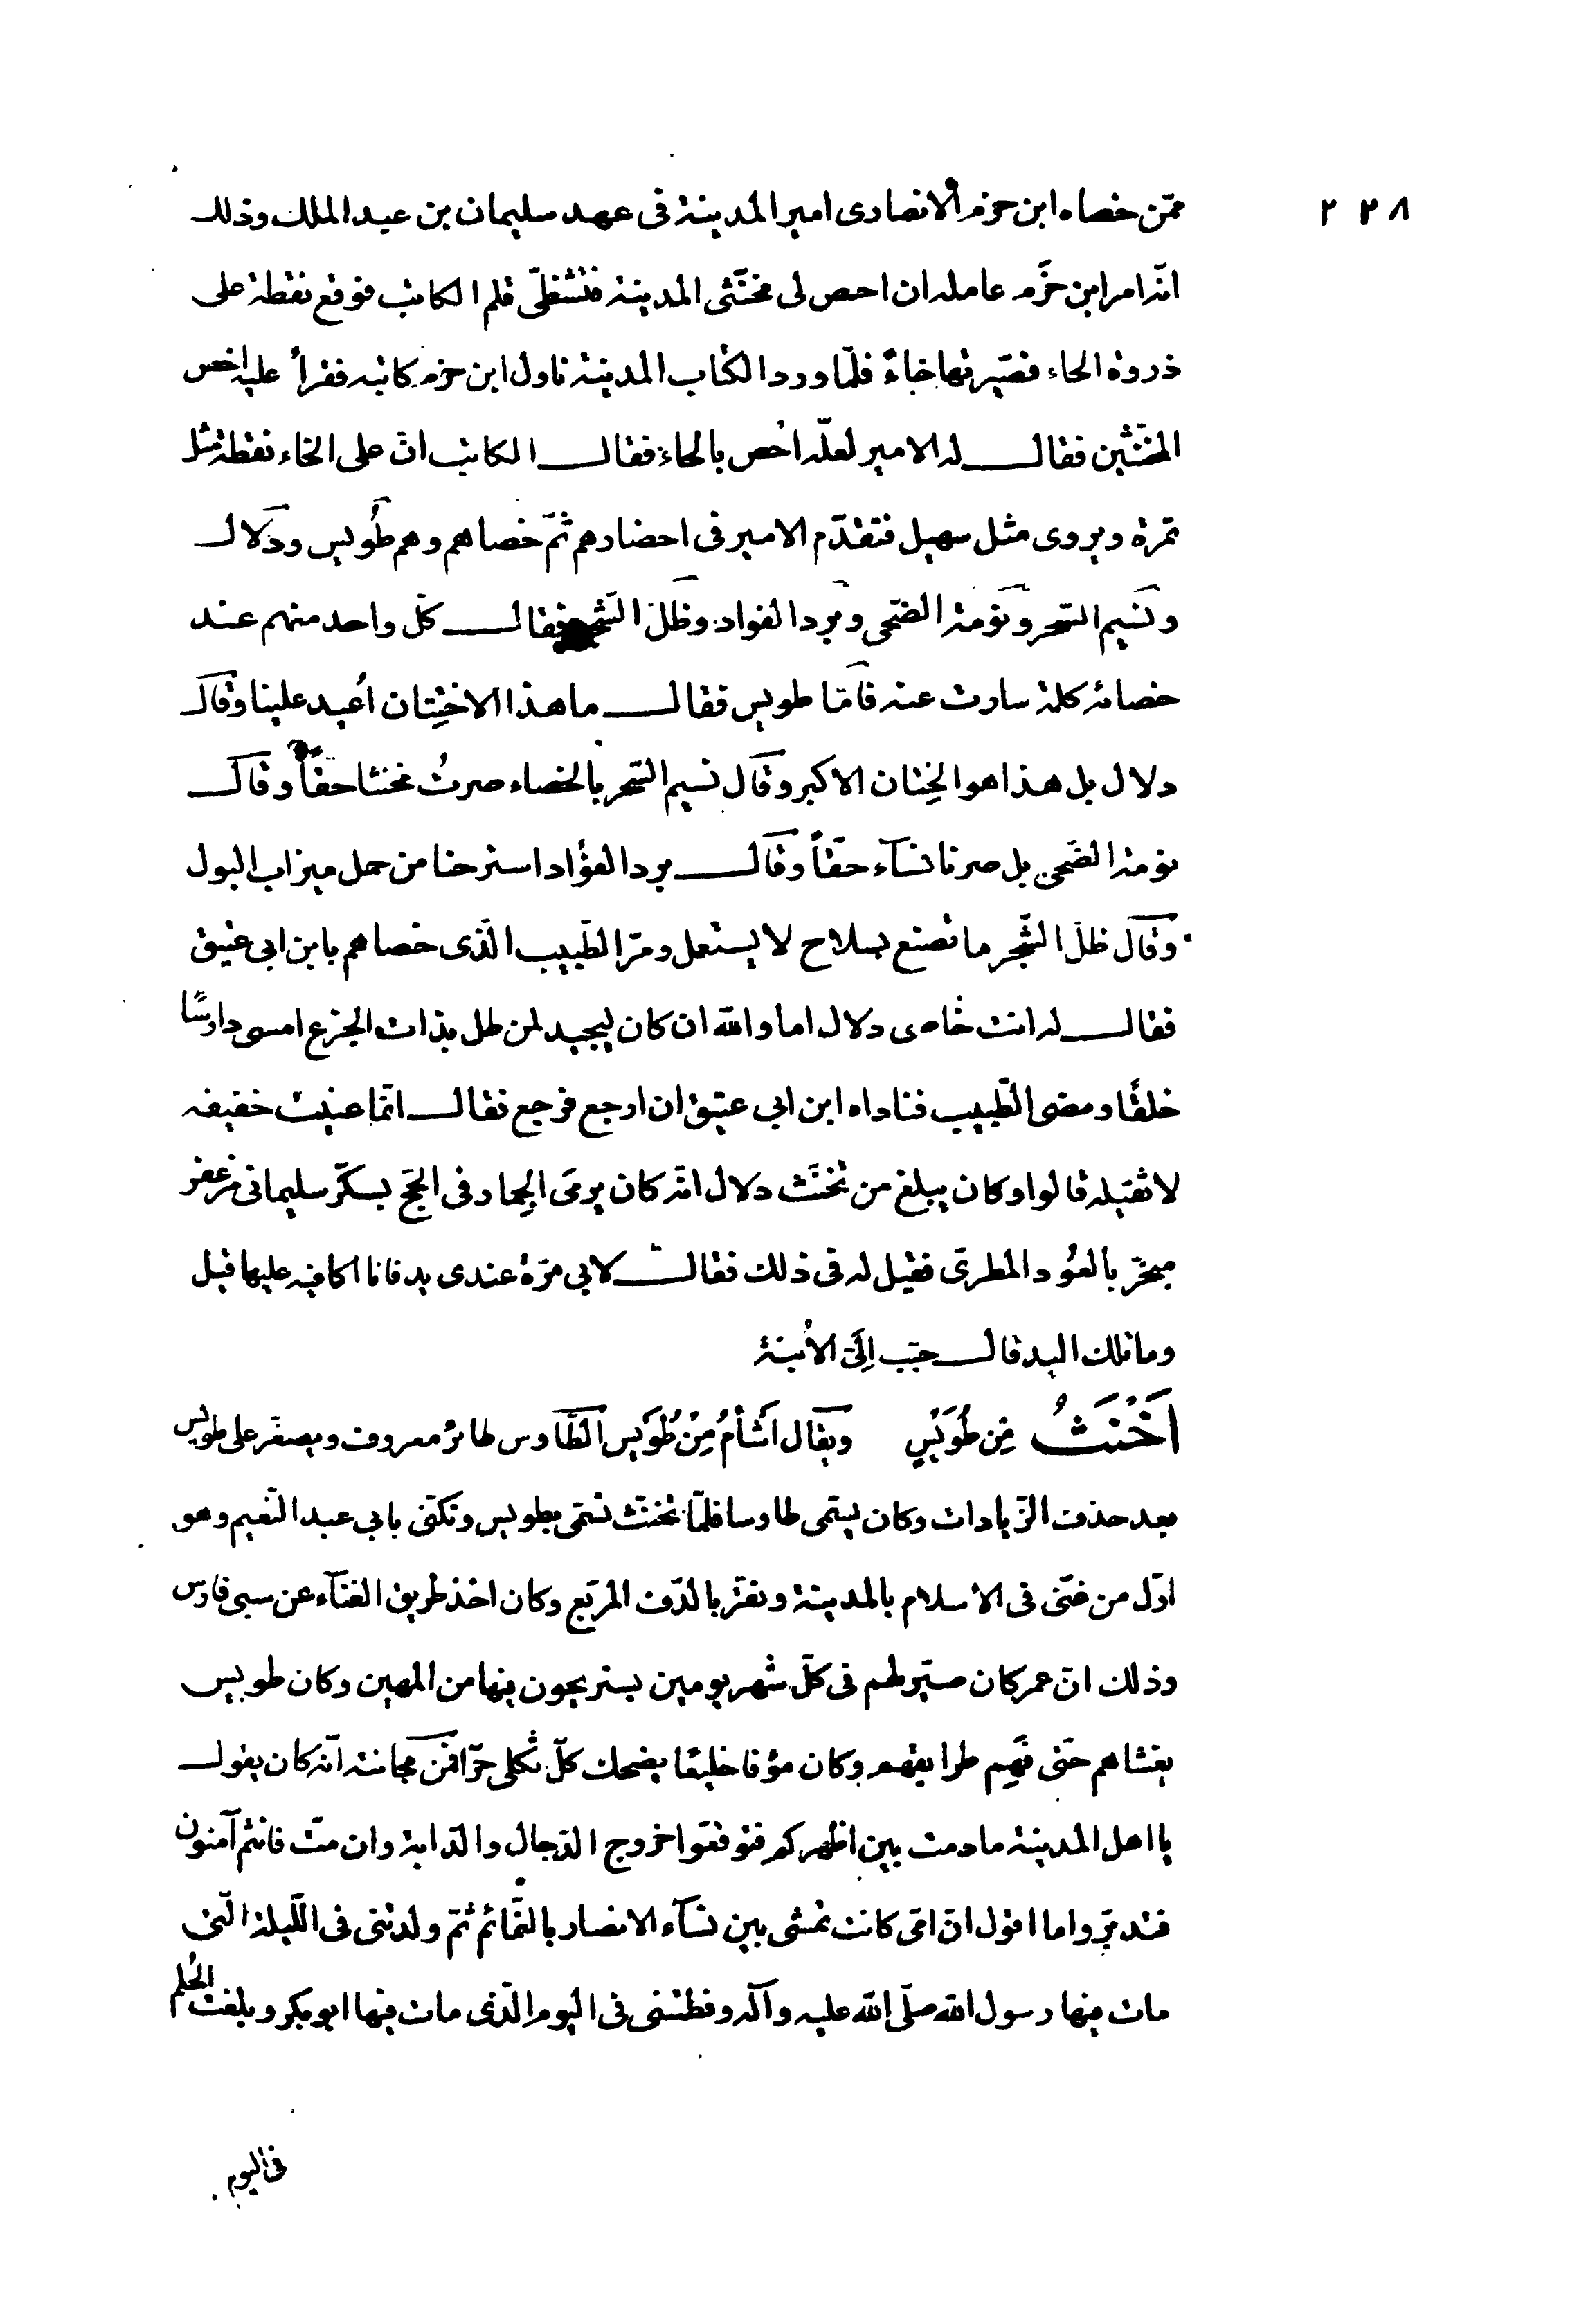 ٢٢٨
ممّن خصاه ابن حزم الانصارى امير المدينة فى عهد سليمان بن عبد الملك وذلك
انّه امر ابن حَزم عامله ان احص لى مخنّثى المدينة فتشظّى قلم الكاتب فوقع نقطة على
ذروة الحاء فصيّرتها خاءً فلمّا ورد الكتاب المدينة ناول ابن حزم كاتبه فقرأ عليه اخص
المخنّثين فقال له الامير لعلّه احُص بالحاء فقال الكاتب انّ على الخاء نقطة مثل
تمرة ويروى مثل سهيل فتقدّم الامير فى احضارهم ثمّ خصاهم وهم طُويس ودَلال
ونَسيم السّحر ونَومة الضّحى وبَرد الفواد وظَلّ الشّجر فقال كلّ واحد منهم عند
خصائه كلمة سارت عنه فامّا طويس فقال ما هذا الا ختِان اُعيد علينا وقال
دلال بل هذا هو الخِتان الاكبر وقال نسيم السّحر بالخصاء صرتُ مخنثا حقّاً وقال
نومة الضّحى بل صرنا نسآء حقّاً وقال برد الفؤاد استرحنا من حمل ميزاب البول
وقال ظلّ الشّجر ما نصنع بسلاح لا يستعمل ومرّ الطّبيب الّذى خصاهم بابن ابى عتيق
فقال له انت خاصى دلال اما والله ان كان ليجيد لمن طلل بذات الجزع امسى دارسًا
خلقًا ومضى الطّبيب فناداه ابن ابى عتيق ان ارجع فرجع فقال انّما عنيت خفيفه
لا ثقيله قالوا وكان يبلغ من تخنّث دلال انّه كان يرمى الجِمار فى الحجّ بسكّر سليمانى مزعفر
مبخّر بالعُود المطرىّ فقيل له فى ذلك فقال لابى مرّة عندى يد فانا اكافيه عليها قيل
وما تلك اليد قال حبّب اِلىّ الاُبنة
اَخْنَثُ مِن طُوَيْسٍ ويقال اَشأَمُ مِنْ طُوَيس الطّاوس طائر معروف ويصغّر على طويس
بعد حذف الزّيادات وكان يسمّى طاوسا فلمّا تخنّث تسمّى بطويس وتكنّى بابى عبد النّعيم وهو
اوّل من غنّى فى الاسلام بالمدينة ونقر بالدّف المربّع وكان اخذ طريق الغنآء عن سبى فارس
وذلك انّ عمر كان صيّر لهم فى كلّ شهر يومين يستريحون فيها من المهين وكان طويس
يغشاهم حتّى فَهِم طرايقهم وكان مؤفا خليعًا يضحك كلّ ثكلى حرّا فمن مجانته انّه كان يقول
يا اهل المدينة ما دمت بين اظهركم فتوقعوا خروج الدّجال والدّابة وان متّ فانتم آمنون
فتدبّروا ما اقول انّ امّى كانت تمشى بين نسآء الانصار بالنّمائم ثمّ ولدتنى فى اللّيلة الّتى
مات فيها رسول الله صلّى الله عليه وآله وفطمتنى فى اليوم الّذى مات فيها ابو بكر وبلغت الحُلم
فى اليوم